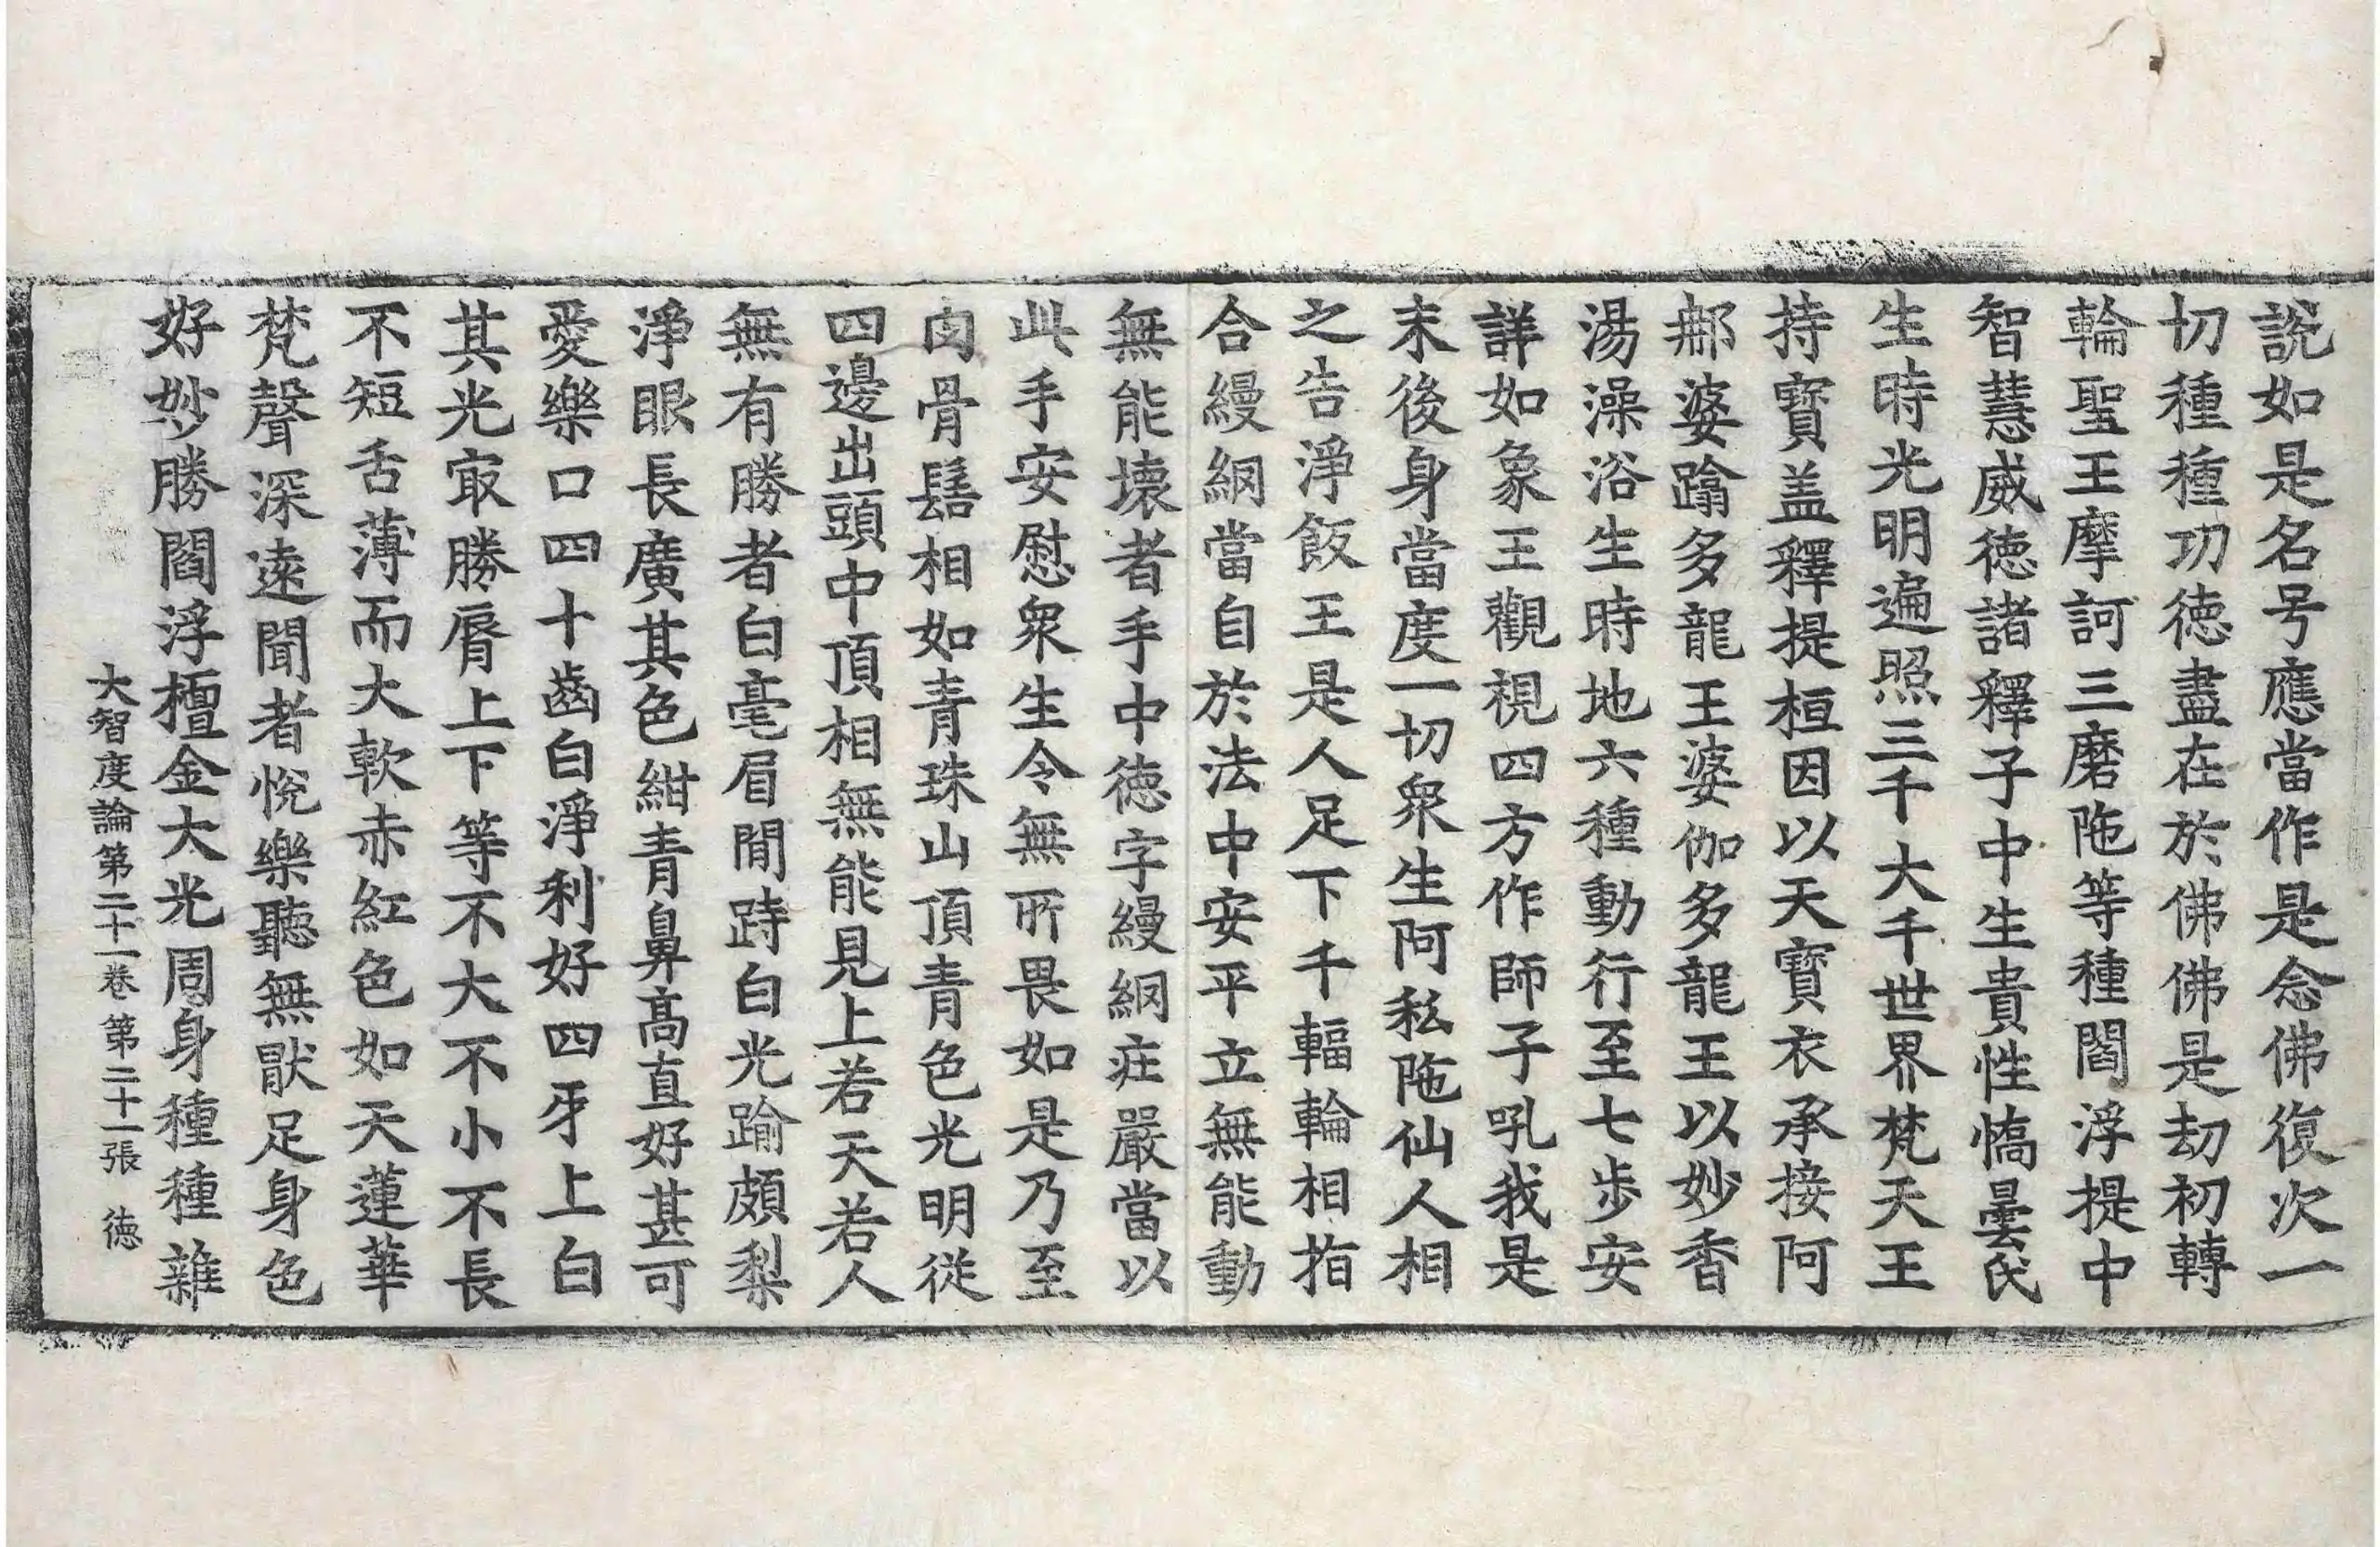 說如是名号應當作是念佛復次一
切種種功徳盡在於佛佛是劫初轉
輪聖王摩訶三磨陁等種閻浮提中
智慧威徳諸釋子中生貴性憍曇氏
生時光明遍照三千大千世界梵天王
持寶盖釋提桓因以天寶衣承接阿
那婆蹹多龍王婆伽多龍王以妙香
湯澡浴生時地六種動行至七步安
詳如象王觀視四方作師子吼我是
末後身當度一切衆生阿私陁仙人相
之告淨飯王是人足下千輻輪相指
合縵網當自於法中安平立無能動
無能壞者手中徳字縵網莊嚴當以
此手安慰衆生令無所畏如是乃至
肉骨髻相如青珠山頂青色光明從
四邊出頭中頂相無能見上若天若人
無有勝者白毫眉間跱白光踰頗梨
淨眼長廣其色紺青鼻髙直好甚可
愛樂口四十齒白淨利好四牙上白
其光㝡勝脣上下等不大不小不長
不短舌薄而大軟赤紅色如天蓮華
梵聲深遠聞者悅樂聽無猒足身色
好妙勝閻浮檀金大光周身種種雜
大智度論第二十一卷 第二十一張 徳